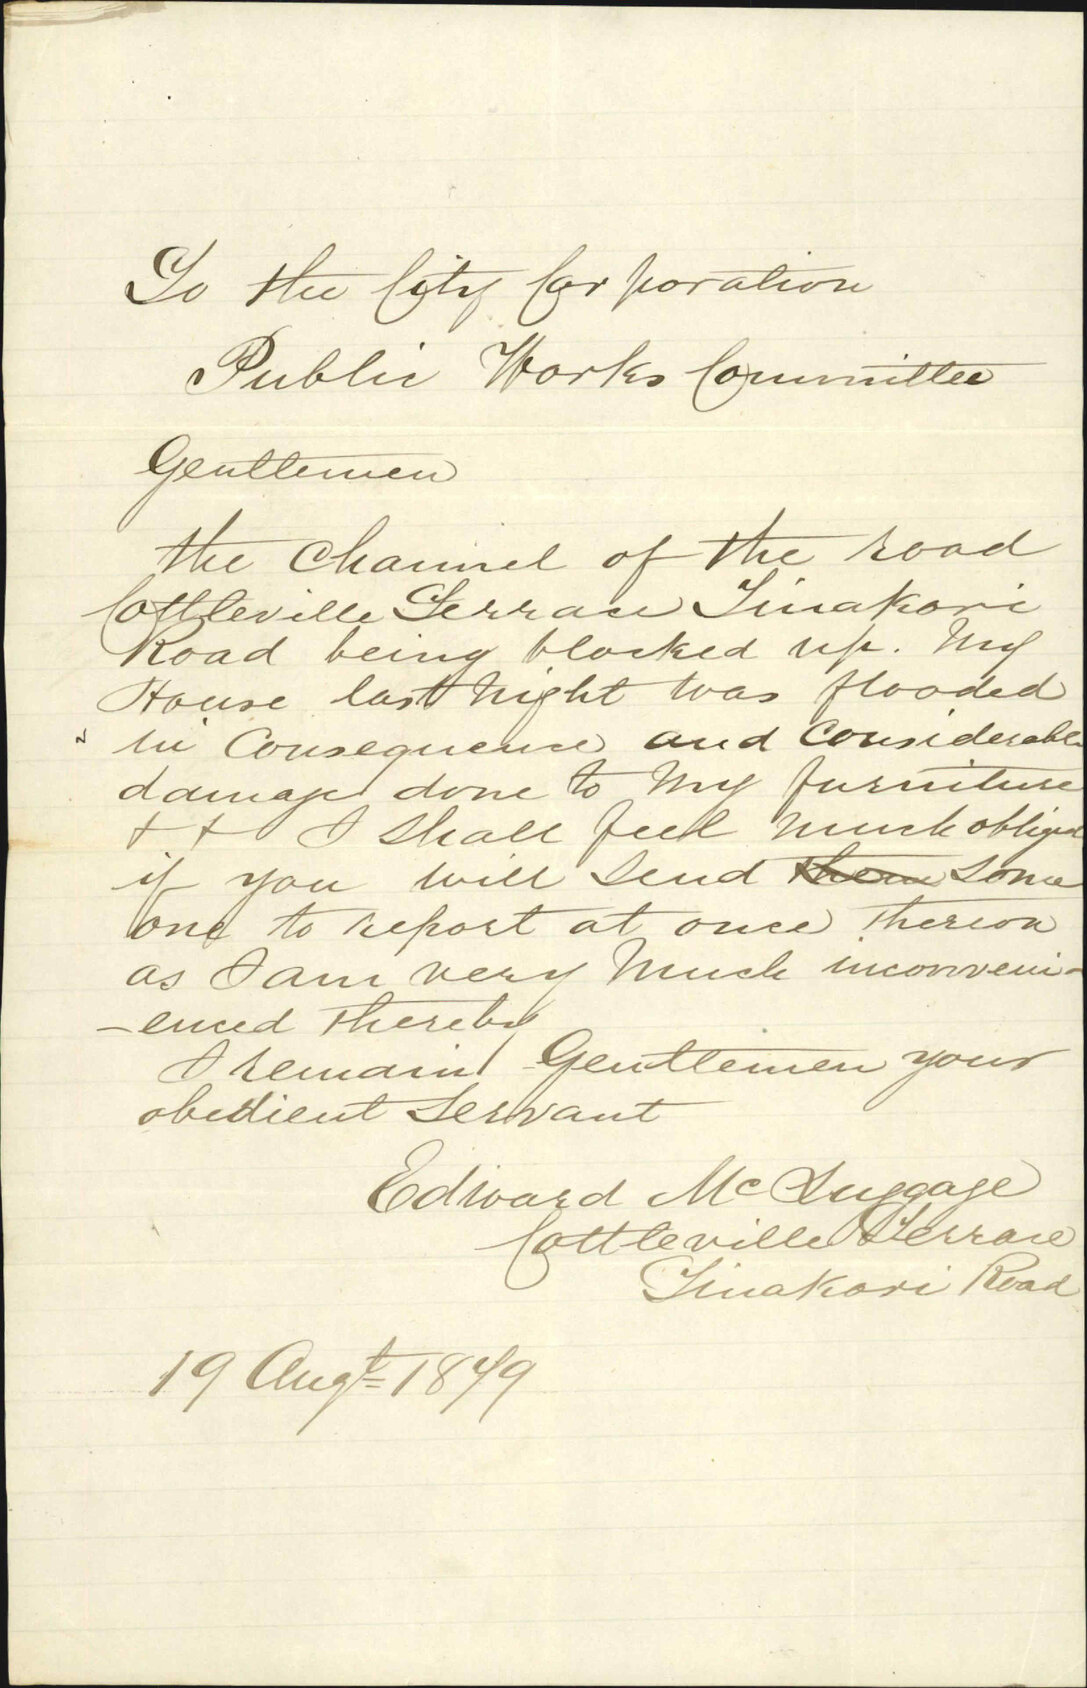 To the City Corporation
Public Works Committee
Gentlemen
the Channel of the road
Cottleville Terrace Tinakori
Road being blocked up. My
House last Night was flooded
in Consequence and Considerable
damage done to My furniture
+ + I shall feel Much obliged
if you will Send them Some
one to report at once thereon
as I am very Much inconveni-
-enced thereby
I remain Gentlemen your
obedient Servant
Edward Mc Luggage
Cottleville Terrace
Tinakori Road
19 Augt 1879